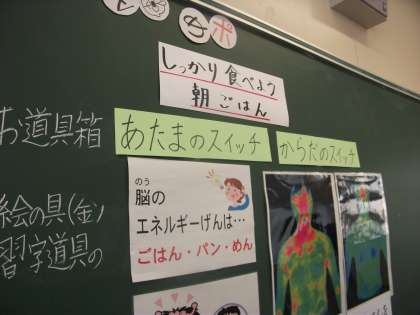 ポ
しっかり食べよう
朝ごはん
お道具箱
あたまのスイッチ
からだのスイッチ
絵の具(金)
習字道具の
のう
脳の
エネルギーげんは…
ごはん・パン・めん